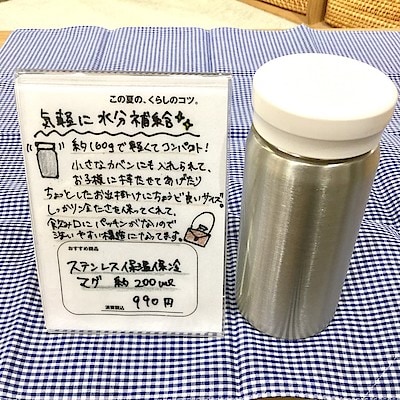 この夏の、くらしのコツ。
気軽に水分補給
約160gで軽くてコンパクト!
小さなカバンにも入れられて、
お子様に持たせてあげたり
ちょっとしたお出掛けにちょうど良いサイズ。
しっかり冷たさを保ってくれて、
飲み口にパッキンがないので
洗いやすい構造になってます。
おすすめ商品
ステンレス保温保冷
マグ 約200ml
990円
消費税込